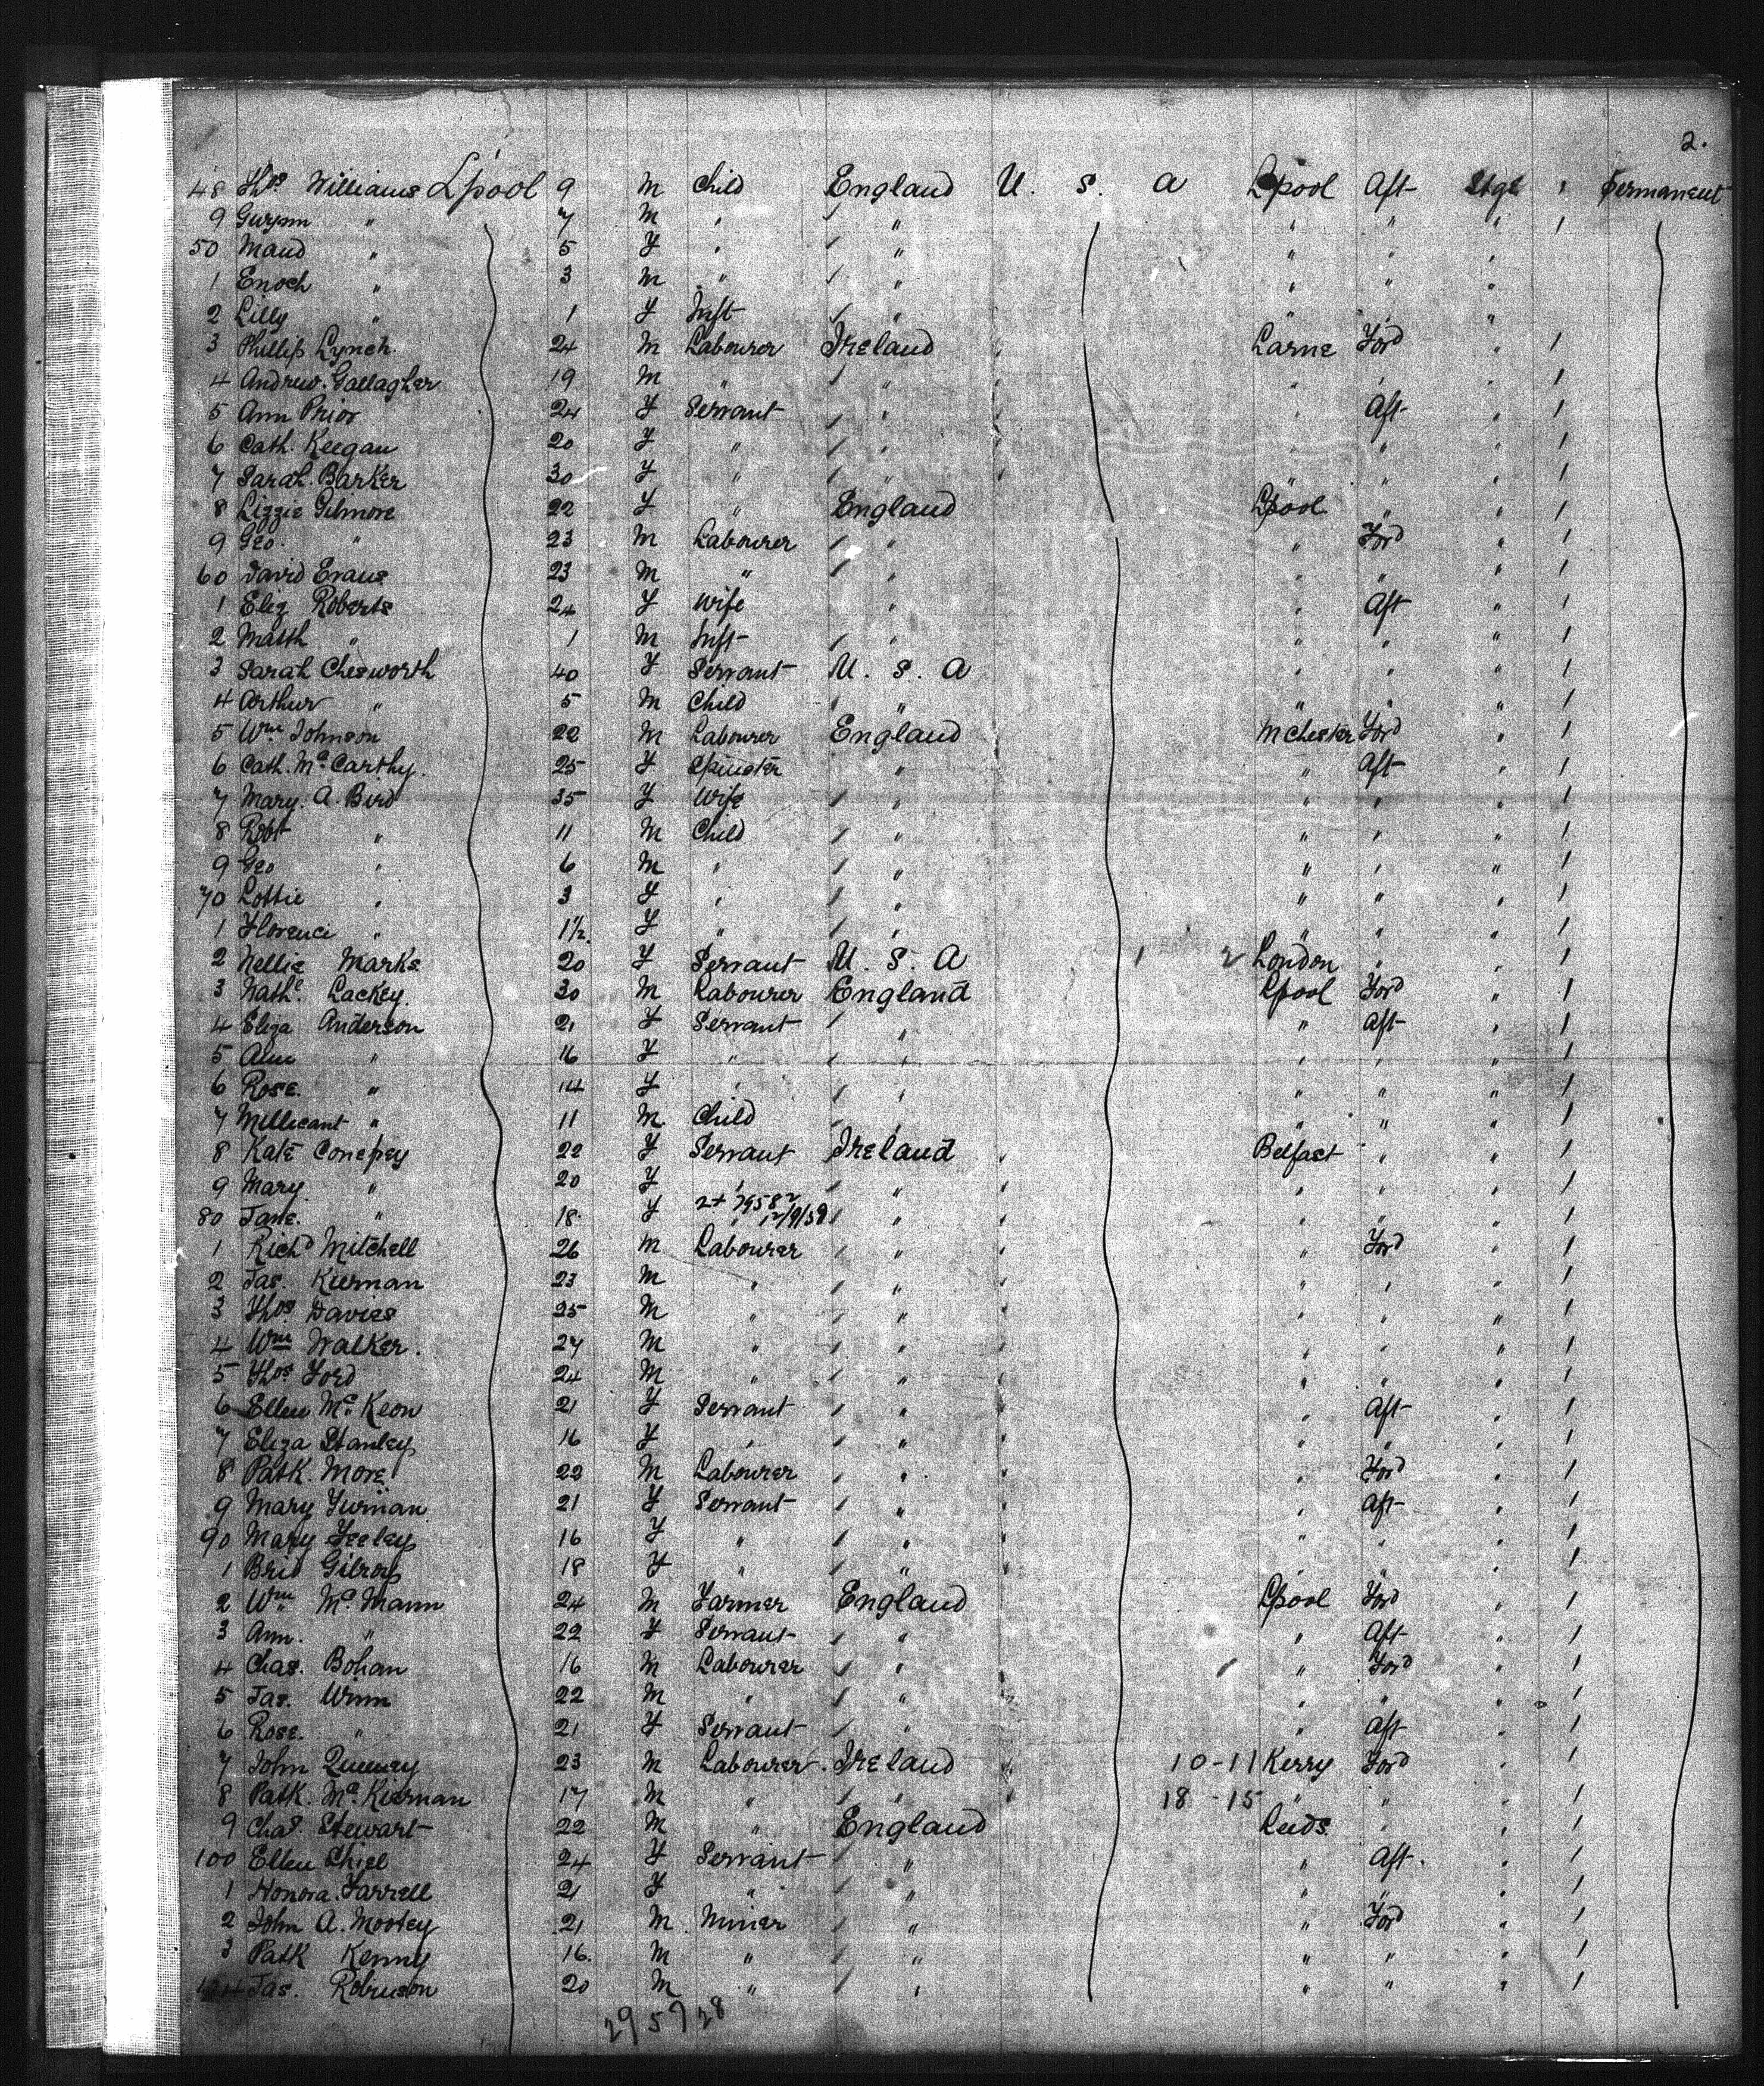 2.
48 Thos Williams L'pool 9 M Child England U. S. A Lpool Aft Stge 1 Permanent
9 Gwynn " 7 M " " " " " 1
50 Maud " 5 F " " " " "
1 Enoch " 3 M " " " " "
2 Lilly " 1 F Inft " " " "
3 Phillip Lynch 24 M Labourer Ireland Larne Ford " 1
4 Andrew Gallagher 19 M " " " " " 1
5 Ann Prior 24 F Servant " " Aft " 1
6 Cath. Keegan 20 F " " " " " 1
7 Sarah Barker 30 F " " " " " 1
8 Lizzie Gilmore 22 F " England Lpool " " 1
9 Geo. " 23 M Labourer " " Ford " 1
60 David Evans 23 M " " " " " 1
1 Eliz Roberts 24 F Wife " " Aft " 1
2 Matth " 1 M Inft " " " " 1
3 Sarah Chesworth 40 F Servant U. S. A " " " 1
4 Arthur " 5 M Child " " " " 1
5 Wm Johnson 22 M Labourer England Mchester Ford " 1
6 Cath. Mc Carthy. 25 F Spinster " " Aft " 1
7 Mary. A. Bird 35 F Wife " " " " 1
8 Robt " 11 M Child " " " " 1
9 Geo " 6 M " " " " " 1
70 Lottie " 3 F " " " " " 1
1 Florence " 1½ F " " " " " 1
2 Nellie Marks 20 F Servant U. S. A London " " 1
3 Nathl. Lackey. 30 M Labourer England Lpool Ford " 1
4 Eliza Anderson 21 F Servant " " Aft " 1
5 " 16 F " " " " " 1
6 Rose. " 14 F " " " " " 1
7 Millicant " 11 M. Child " " " " 1
8 Kate Conefrey 22 F Servant Ireland Belfast " " 1
9 Mary. " 20 F " " " " " 1
80 Jane. " 18 F " " " " " 1
1 Richd Mitchell 26 M Labourer " " Ford " 1
2 Jas. Kiernan 23 M " " " " " 1
3 Thos. Davies 25 M " " " " " 1
4 Wm Walker. 27 M " " " " " 1
5 Thos Ford 24 M " " " " " 1
6 Ellen Mc Keon 21 F Servant " " Aft " 1
7 Eliza Stanley 16 F " " " " " 1
8 Patk. More 22 M Labourer " " Ford " 1
9 Mary Furnan 21 F Servant " " Aft " 1
90 Mary Feeley 16 F " " " " " 1
1 Brid Gilroy 18 F " " " " " 1
2 Wm Mc Mann 24 M Farmer England Lpool Ford " 1
3 Ann. " 22 F Servant " " Aft " 1
4 Chas. Bohan 16 M Labourer " " Ford " 1
5 Jas. Winn 22 M " " " " " 1
6 Rose. " 21 F Servant " " Aft " 1
7 John 23 M Labourer Ireland 10-11 Kerry Ford " 1
8 Patk. Mc Kiernan 17 M " " 18-15 " " " 1
9 Chas. Stewart 22 M " England Leeds " " 1
100 Ellen Shiel 24 F Servant " " Aft. " 1
1 Honora Farrell 21 F " " " " " 1
2 John A. Mootey 21 M Miner " " Ford " 1
3 Patk Kenny 16. M " " " " " 1
104 Jas. Robinson 20 M " " " " " 1